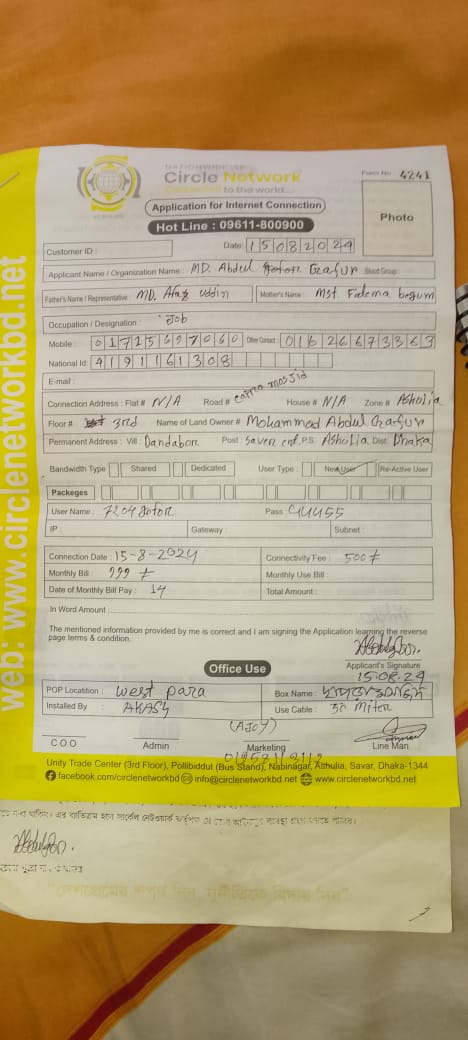 NATIONWIDE ISP
Circle Network
Connected to the world...
Form No 4241
Application for Internet Connection
Hot Line : 09611-800900
Photo
Customer ID :
Date 15082024
Applicant Name / Organization Name : MD. Abdul Gafur Blood Group :
Father's Name / Representative MD. Afaz Uddin Mother's Name : Mst. Fatema begum
Occupation / Designation : Job
Mobile : 01725697060 Other Contact : 01626673363
National Id: 4191161308
E-mail :
Connection Address : Flat # N/A Road # mosjid House # N/A Zone # Asholia
Floor # 3rd Name of Land Owner # Mohammad Abdul Gafur
Permanent Address : Vill : Dandabor Post : Saver P.S. Asholia Dist. Dhaka
Bandwidth Type Shared Dedicated User Type : New User Re-Active User
Packeges
User Name : 7204gofor Pass : 44455
IP : Gateway : Subnet :
Connection Date : 15-8-2024 Connectivity Fee : 500
Monthly Bill : 999 Monthly Use Bill :
Date of Monthly Bill Pay : 14 Total Amount :
In Word Amount
The mentioned information provided by me is correct and I am signing the Application learning the reverse
page terms & condition.
Applicant's Signature
15.08.24
Office Use
POP Locatition : West para Box Name :
Installed By : AKASH Use Cable : 30 Miter
(AJOY)
C.O.O Admin Marketing Line Man
Unity Trade Center (3rd Floor), Pollibiddut (Bus Stand), Nabinagar, Ashulia, Savar, Dhaka-1344
facebook.com/circlenetworkbd info@circlenetworkbd.net www.circlenetworkbd.net
web: www.circlenetworkbd.net